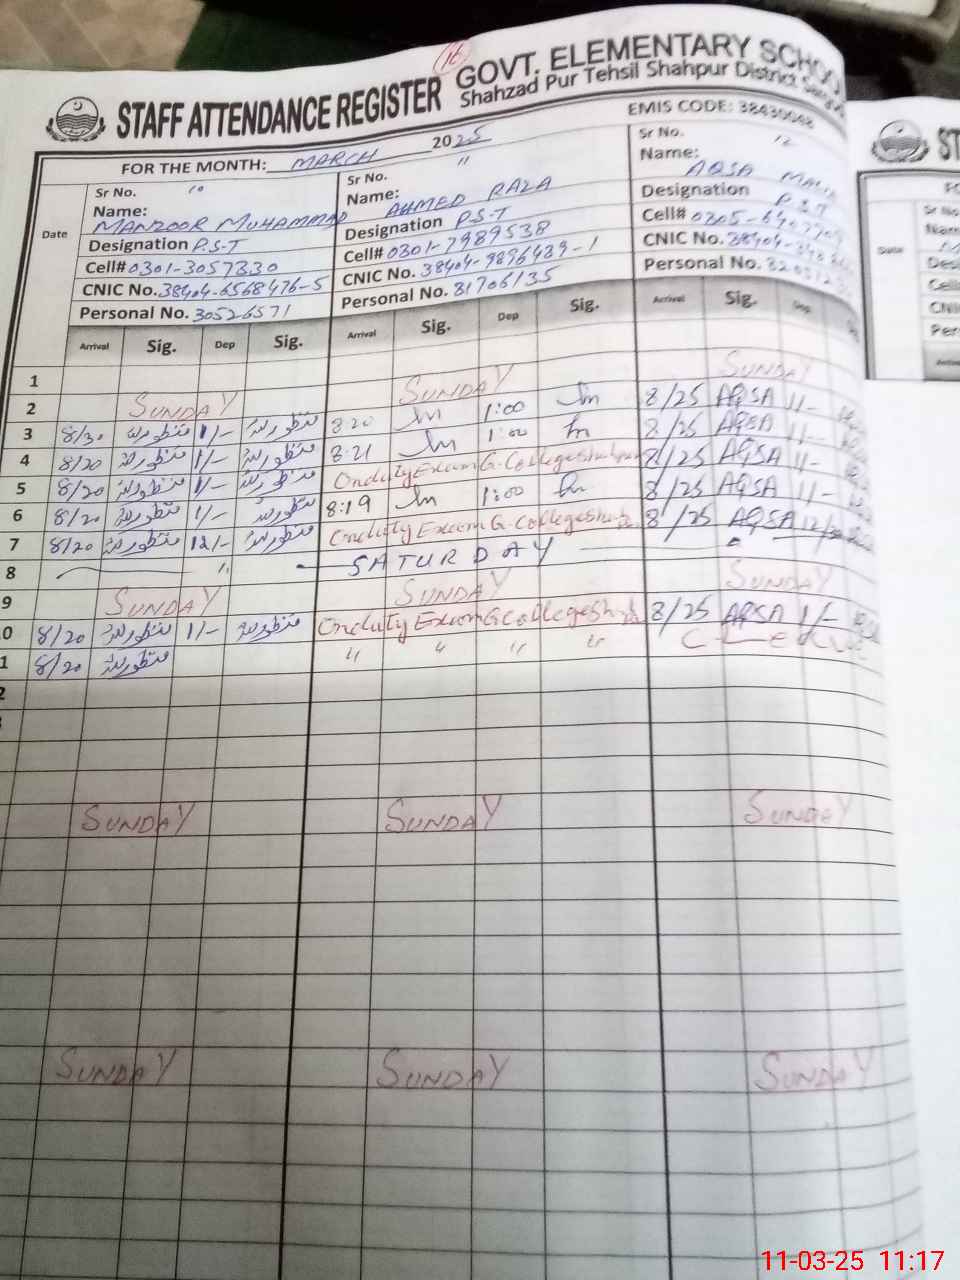 16
STAFF ATTENDANCE REGISTER GOVT. ELEMENTARY SCHOOL
Shahzad Pur Tehsil Shahpur District
EMIS CODE: 38430048
FOR THE MONTH: MARCH 2025
Date
Sr No. 10
Name:
MANZOOR MUHAMMAD
Designation P.S.T
Cell# 0301-3057330
CNIC No. 38404-6568476-5
Personal No. 30526571
Sr No. 11
Name:
AHMED RAZA
Designation P.S.T
Cell# 0301-7989538
CNIC No. 38404-9896439-1
Personal No. 31706135
Sr No. 12
Name:
AQSA
Designation P.S.T
Cell# 0305-
CNIC No. 38404-
Personal No.
Arrival Sig. Dep Sig. Arrival Sig. Dep Sig. Arrival Sig. Dep
1
2 SUNDAY SUNDAY SUNDAY
3 8/30 منظور 1/- منظور 8:20 1:00 8/25 AQSA 1/-
4 8/20 منظور 1/- منظور 8:21 1:00 8/25 AQSA 1/-
5 8/20 منظور 1/- منظور Onduty Exam G. College 8/25 AQSA 1/-
6 8/20 منظور 1/- منظور 8:19 1:00 8/25 AQSA 1/-
7 8/20 منظور 12/- منظور Onduty Exam G. College 8/25 AQSA 12/
8 SATURDAY
9 SUNDAY SUNDAY SUNDAY
0 8/20 منظور 1/- منظور Onduty Exam G College 8/25 AQSA 1/-
1 8/20 منظور " " " "
2
SUNDAY SUNDAY SUNDAY
SUNDAY SUNDAY SUNDAY
ST
Sr No
Date
11-03-25 11:17